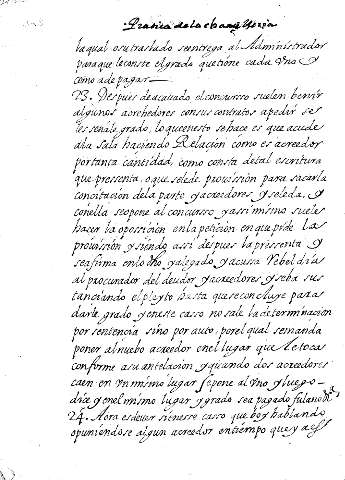 Practica de la chanzilleria
la qual o su traslado se entrega al Administrador
para que le conste el grado que tiene cada vno y
como a de pagar
73. Despues de acavado el concursso suelen benir
algunos acrehedores con sus contratos a pedir se
les señale grado, lo que en esto se haze es que acude
a la Sala haziendo Relacion como es acreedor
por tanta cantidad, como consta de tal escritura
que pressenta, o que se le de provission para sacarla
con citacion de la parte y acreedores y se le da, y
con ella se opone al concursso y assi mismo suele
hacer la oposicion en la peticion en que pide la
provission y siendo assi despues la pressenta y
se afirma en lo dho y alegado y acussa Rebeldias
al procurador del deudor y acreedores y se ba sus
canciando el pleyto hasta que se concluye para
darle grado y en este casso no sale la determinacion
por sentencia sino por auto. por el qual se manda
poner al nuebo acreedor en el lugar que le toca
conforme a su antelacion y quando dos acreedores
caen en vn mismo lugar se pone al vno y luego
dice y en el mismo lugar y grado sea pagado fulano
74. Aora es de ver si en esse casso que boy hablando
opuniendose algun acreedor en tiempo que ya es